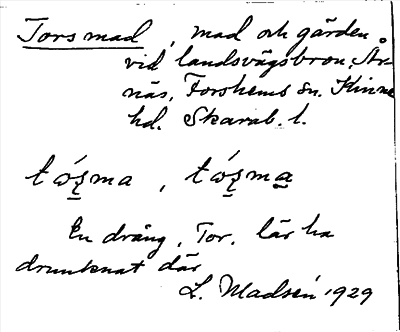 Torsmad, mad och gärden
vid landsvägsbron, År-
näs, Forshems sn. Kinne
hd. Skarab. l.
En dräng, Tor, lär ha
drunknat där
L. Madsén 1929